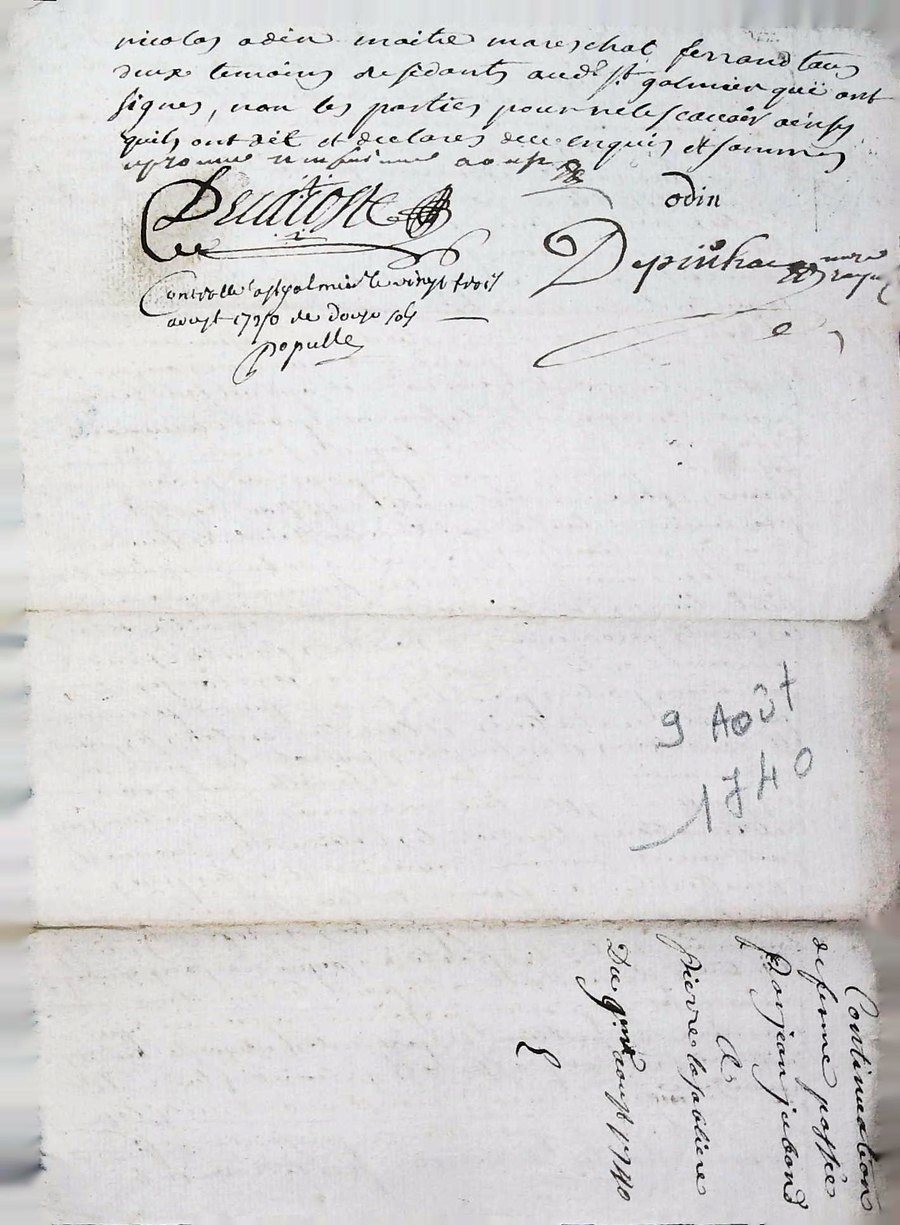 nicolas odin maitre mareschal ferrand tous
deux temoins residants aud. St galmier qui ont
signes, non les parties pour ne le scavoir ainsy
quils ont dit et declares de ce enquis et sommes
odin
Controllé a St galmier le vingt trois
aoust 1740 Rs douze sols
Populle
9 Août
1740
Continuation
de ferme passée
Par jean jubond
a
Pierre la sabliere
Du 9me aoust 1740